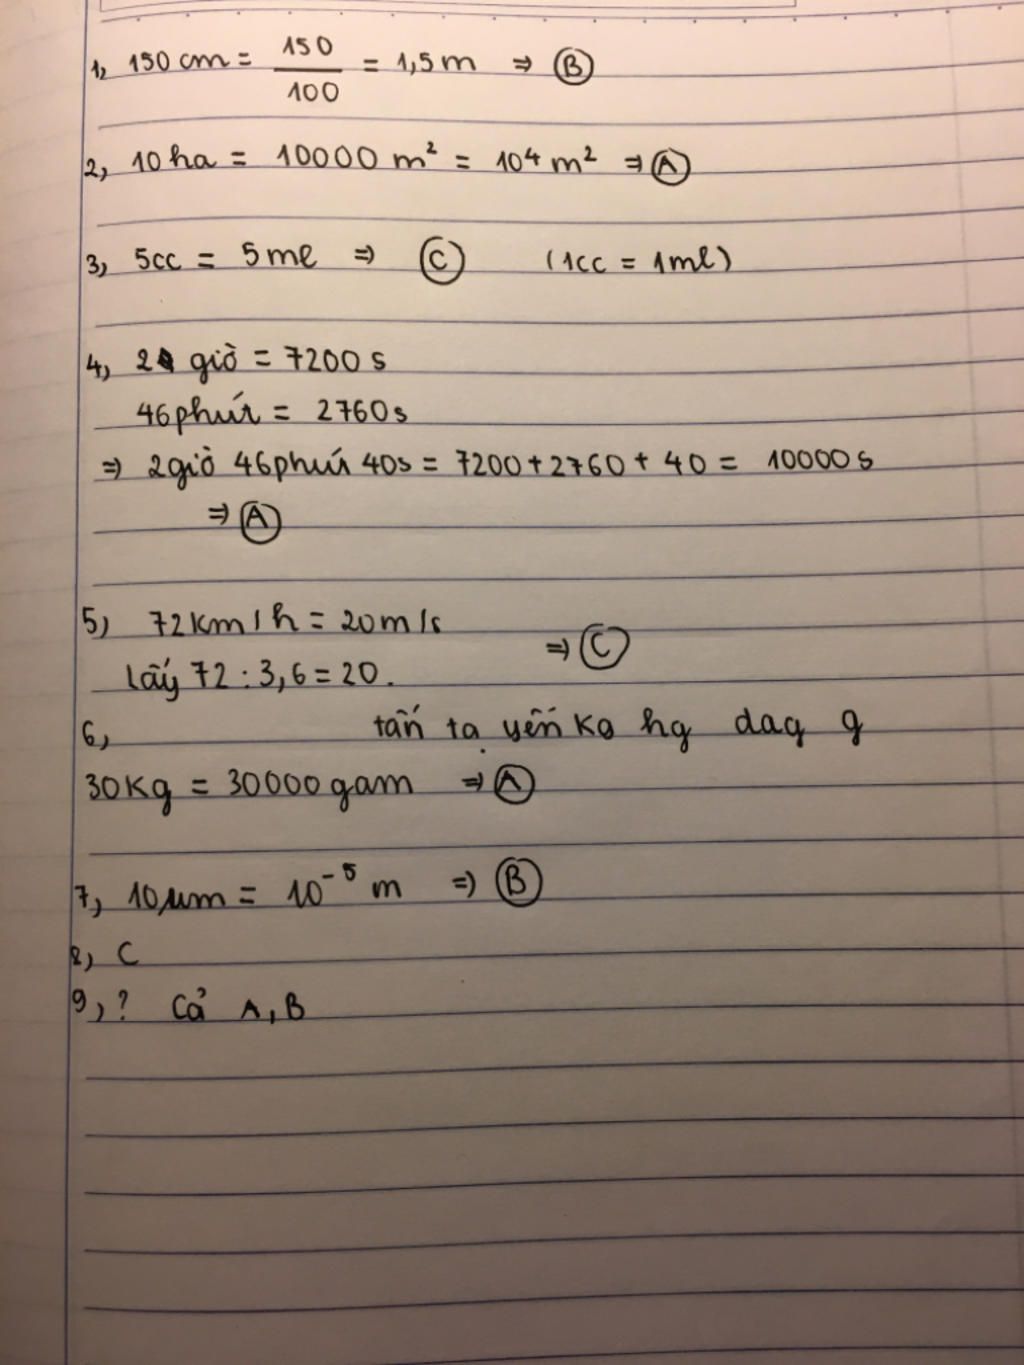 1, 150 cm = 150/100 = 1,5 m ⇒ B
2, 10 ha = 10000 m² = 10⁴ m² ⇒ A
3, 5cc = 5ml ⇒ C (1cc = 1ml)
4, 2 giờ = 7200 s
46 phút = 2760s
⇒ 2 giờ 46 phút 40s = 7200 + 2760 + 40 = 10000 s
⇒ A
5) 72 km/h = 20 m/s
⇒ C
lấy 72 : 3,6 = 20.
6, tấn tạ yến kg hg dag g
30 kg = 30000 gam ⇒ A
7, 10 μm = 10⁻⁵ m ⇒ B
8, C
9, ? Cả A, B